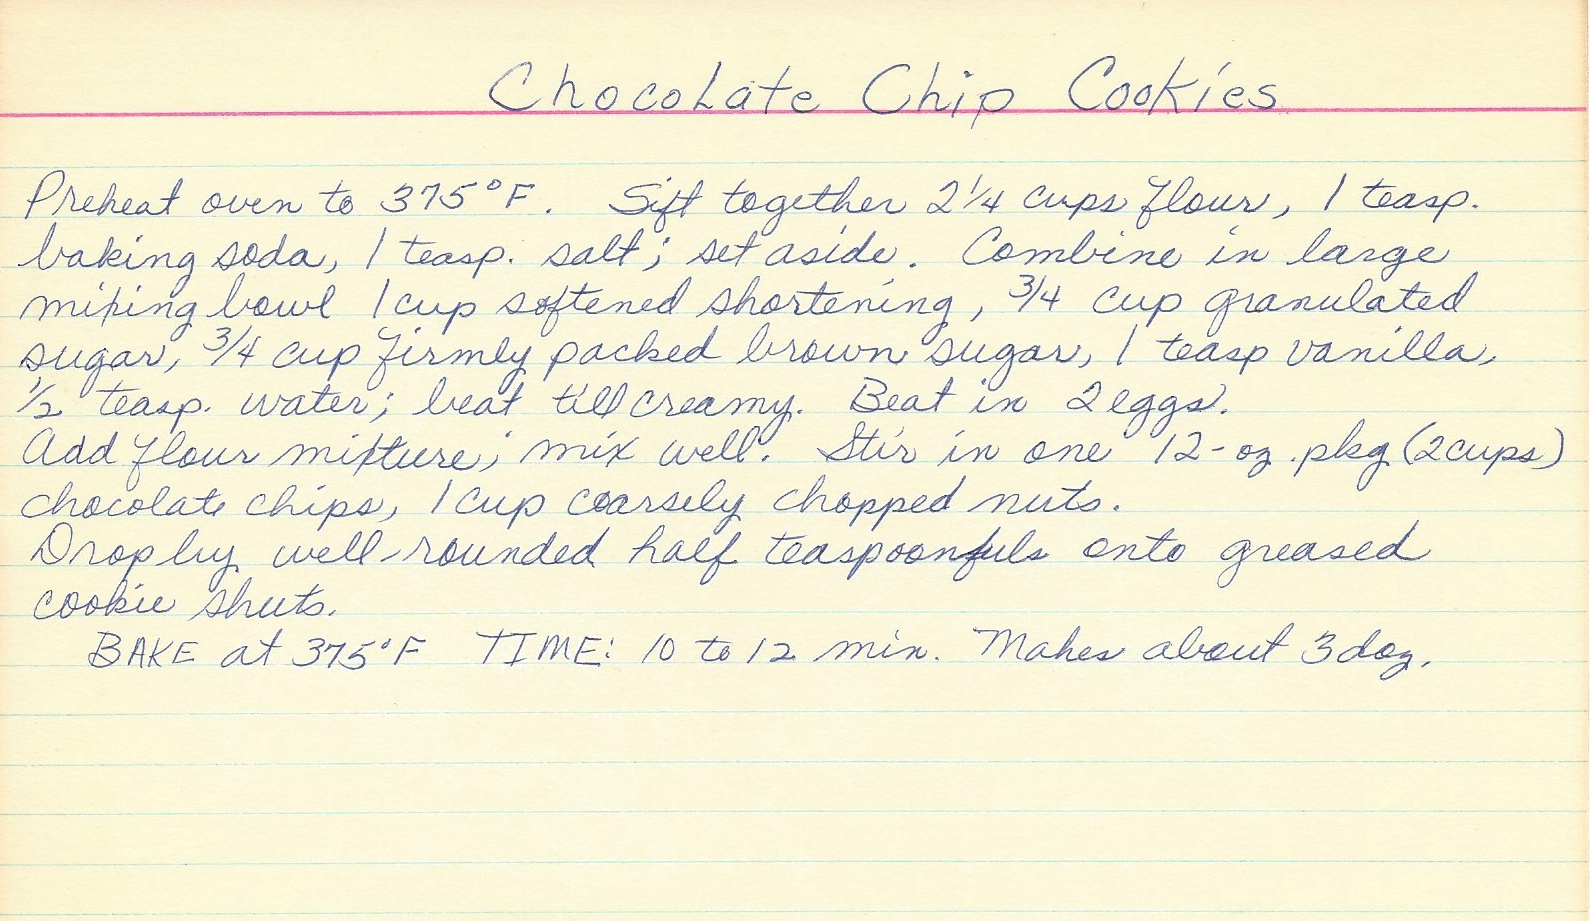 Chocolate Chip Cookies
Preheat oven to 375°F. Sift together 2 1/4 cups flour, 1 teasp.
baking soda, 1 teasp. salt; set aside. Combine in large
mixing bowl 1 cup softened shortening, 3/4 cup granulated
sugar, 3/4 cup firmly packed brown sugar, 1 teasp vanilla,
1/2 teasp. water; beat till creamy. Beat in 2 eggs.
Add flour mixture; mix well. Stir in one 12-oz. pkg (2 cups)
chocolate chips, 1 cup coarsely chopped nuts.
Drop by well-rounded half teaspoonfuls onto greased
cookie sheets.
BAKE at 375°F TIME: 10 to 12 min. Makes about 3 doz.